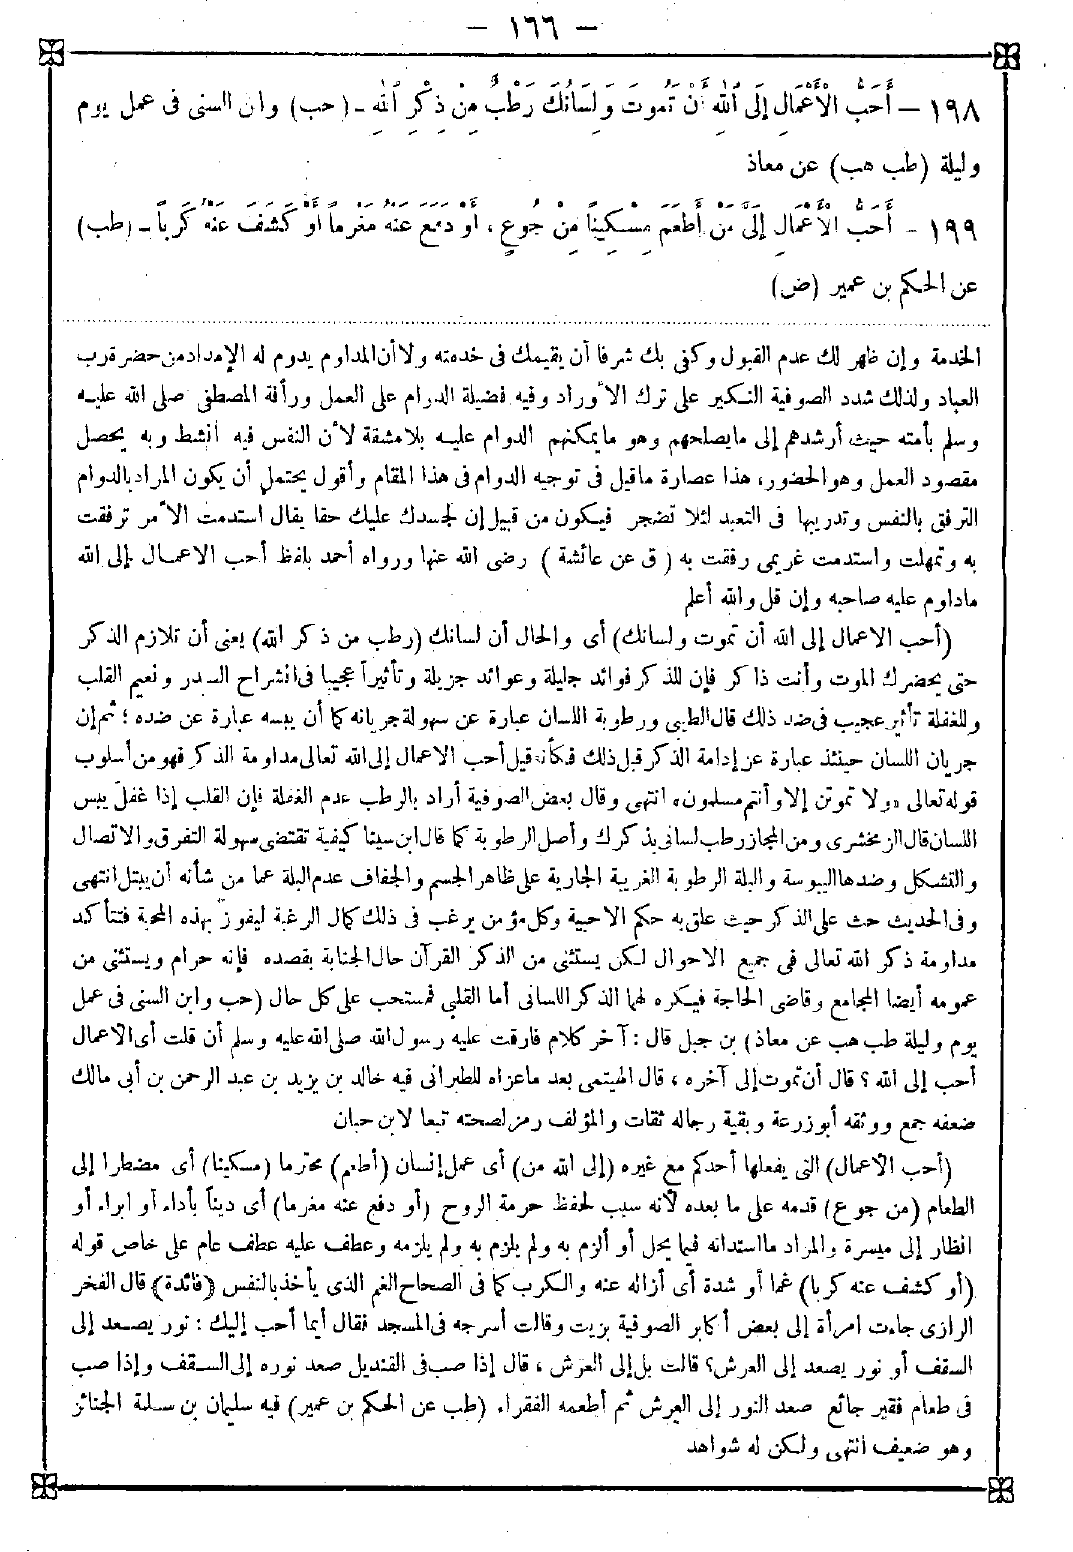 — ١٦٦ —
١٩٨ — أَحَبُّ الْأَعْمَالِ إِلَى اللهِ أَنْ تَمُوتَ وَلِسَانُكَ رَطْبٌ مِنْ ذِكْرِ اللهِ ـ (حب) وابن السنى فى عمل يوم
وليلة (طب هب) عن معاذ
١٩٩ - أَحَبُّ الْأَعْمَالِ إِلَى مَنْ أَطْعَمَ مِسْكِينًا مِنْ جُوعٍ ، أَوْ دَفَعَ عَنْهُ مَغْرَمًا أَوْ كَشَفَ عَنْهُ كَرْبًا ـ (طب)
عن الحكم بن عمير (ض)
الخدمة وإن ظهر لك عدم القبول وكفى بك شرفا أن يقيمك فى خدمته ولأن المداوم يدوم له الإمداد من حضر قرب
العباد ولذلك شدد الصوفية النكير على ترك الأوراد وفيه فضيلة الدوام على العمل ورأفة المصطفى صلى الله عليه
وسلم بأمته حيث أرشدهم إلى ما يصلحهم وهو ما يمكنهم الدوام عليه بلا مشقة لأن النفس فيه أنشط وبه يحصل
مقصود العمل وهو الحضور، هذا عصارة ما قيل فى توجيه الدوام فى هذا المقام وأقول يحتمل أن يكون المراد بالدوام
الترفق بالنفس وتدريبها فى التعبد لئلا تضجر فيكون من قبيل إن لجسدك عليك حقا يقال استدمت الأمر ترفقت
به وتمهلت واستدمت غريمى رفقت به ( ق عن عائشة ) رضى الله عنها ورواه أحمد بلفظ أحب الاعمال إلى الله
ماداوم عليه صاحبه وإن قل والله أعلم
(أحب الاعمال إلى الله أن تموت ولسانك) أى والحال أن لسانك (رطب من ذكر الله) يعنى أن تلازم الذكر
حتى يحضرك الموت وأنت ذاكر فإن للذكر فوائد جليلة وعوائد جزيلة وتأثيراً عجيبا فى انشراح الصدر ونعيم القلب
وللغفلة تأثير عجيب فى ضد ذلك قال الطيبى ورطوبة اللسان عبارة عن سهولة جريانه كما أن يبسه عبارة عن ضده ؛ ثم إن
جريان اللسان حينئذ عبارة عن إدامة الذكر قبل ذلك فكأنه قيل أحب الاعمال إلى الله تعالى مداومة الذكر فهو من أسلوب
قوله تعالى «ولا تموتن إلا وأنتم مسلمون» انتهى وقال بعض الصوفية أراد بالرطب عدم الغفلة فإن القلب إذا غفل يبس
اللسان قال الزمخشرى ومن المجاز رطب لسانى بذكرك وأصل الرطوبة كما قال ابن سينا كيفية تقتضى سهولة التفرق والاتصال
والتشكل وضدها اليبوسة والبلة الرطوبة الغريبة الجارية على ظاهر الجسم والجفاف عدم البلة عما من شأنه أن يبتل انتهى
وفى الحديث حث على الذكر حيث علق به حكم الاحبية وكل مؤمن يرغب فى ذلك كمال الرغبة ليفوز بهذه المحبة فتتأكد
مداومة ذكر الله تعالى فى جميع الاحوال لكن يستثنى من الذكر القرآن حال الجنابة بقصده فإنه حرام ويستثنى من
عمومه أيضا المجامع وقاضى الحاجة فيكره لهما الذكر اللسانى أما القلبى فمستحب على كل حال (حب وابن السنى فى عمل
يوم وليلة طب هب عن معاذ) بن جبل قال : آخر كلام فارقت عليه رسول الله صلى الله عليه وسلم أن قلت أى الاعمال
أحب إلى الله ؟ قال أن تموت إلى آخره ، قال الهيتمى بعد ما عزاه للطبرانى فيه خالد بن يزيد بن عبد الرحمن بن أبى مالك
ضعفه جمع ووثقه أبو زرعة وبقية رجاله ثقات والمؤلف رمز لصحته تبعا لابن حبان
(أحب الاعمال) التى يفعلها أحدكم مع غيره (إلى الله من) أى عمل إنسان (أطعم) محترما (مسكينا) أى مضطرا إلى
الطعام (من جوع) قدمه على ما بعده لأنه سبب لحفظ حرمة الروح (أو دفع عنه مغرما) أى ديناً بأداء أو ابراء أو
انظار إلى ميسرة والمراد ما استدانه فيما يحل أو ألزم به ولم يلزم به ولم يلزمه وعطف عليه عطف عام على خاص قوله
(أو كشف عنه كربا) غما أو شدة أى أزاله عنه والكرب كما فى الصحاح الغم الذى يأخذ بالنفس (فائدة) قال الفخر
الرازى جاءت امرأة إلى بعض أكابر الصوفية بزيت وقالت أسرجه فى المسجد فقال أيما أحب إليك : نور يصعد إلى
السقف أو نور يصعد إلى العرش؟ قالت بل إلى العرش ، قال إذا صب فى القنديل صعد نوره إلى السقف وإذا صب
فى طعام فقير جائع صعد النور إلى العرش ثم أطعمه الفقراء (طب عن الحكم بن عمير) فيه سليمان بن سلمة الجنائز
وهو ضعيف انتهى ولكن له شواهد